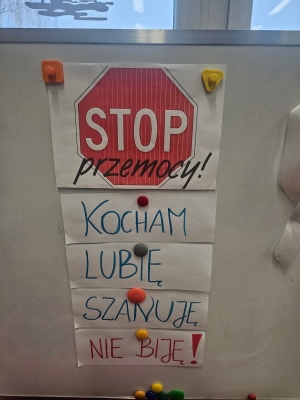 STOP
przemocy!
KOCHAM
LUBIĘ
SZANUJĘ
NIE BIJĘ!